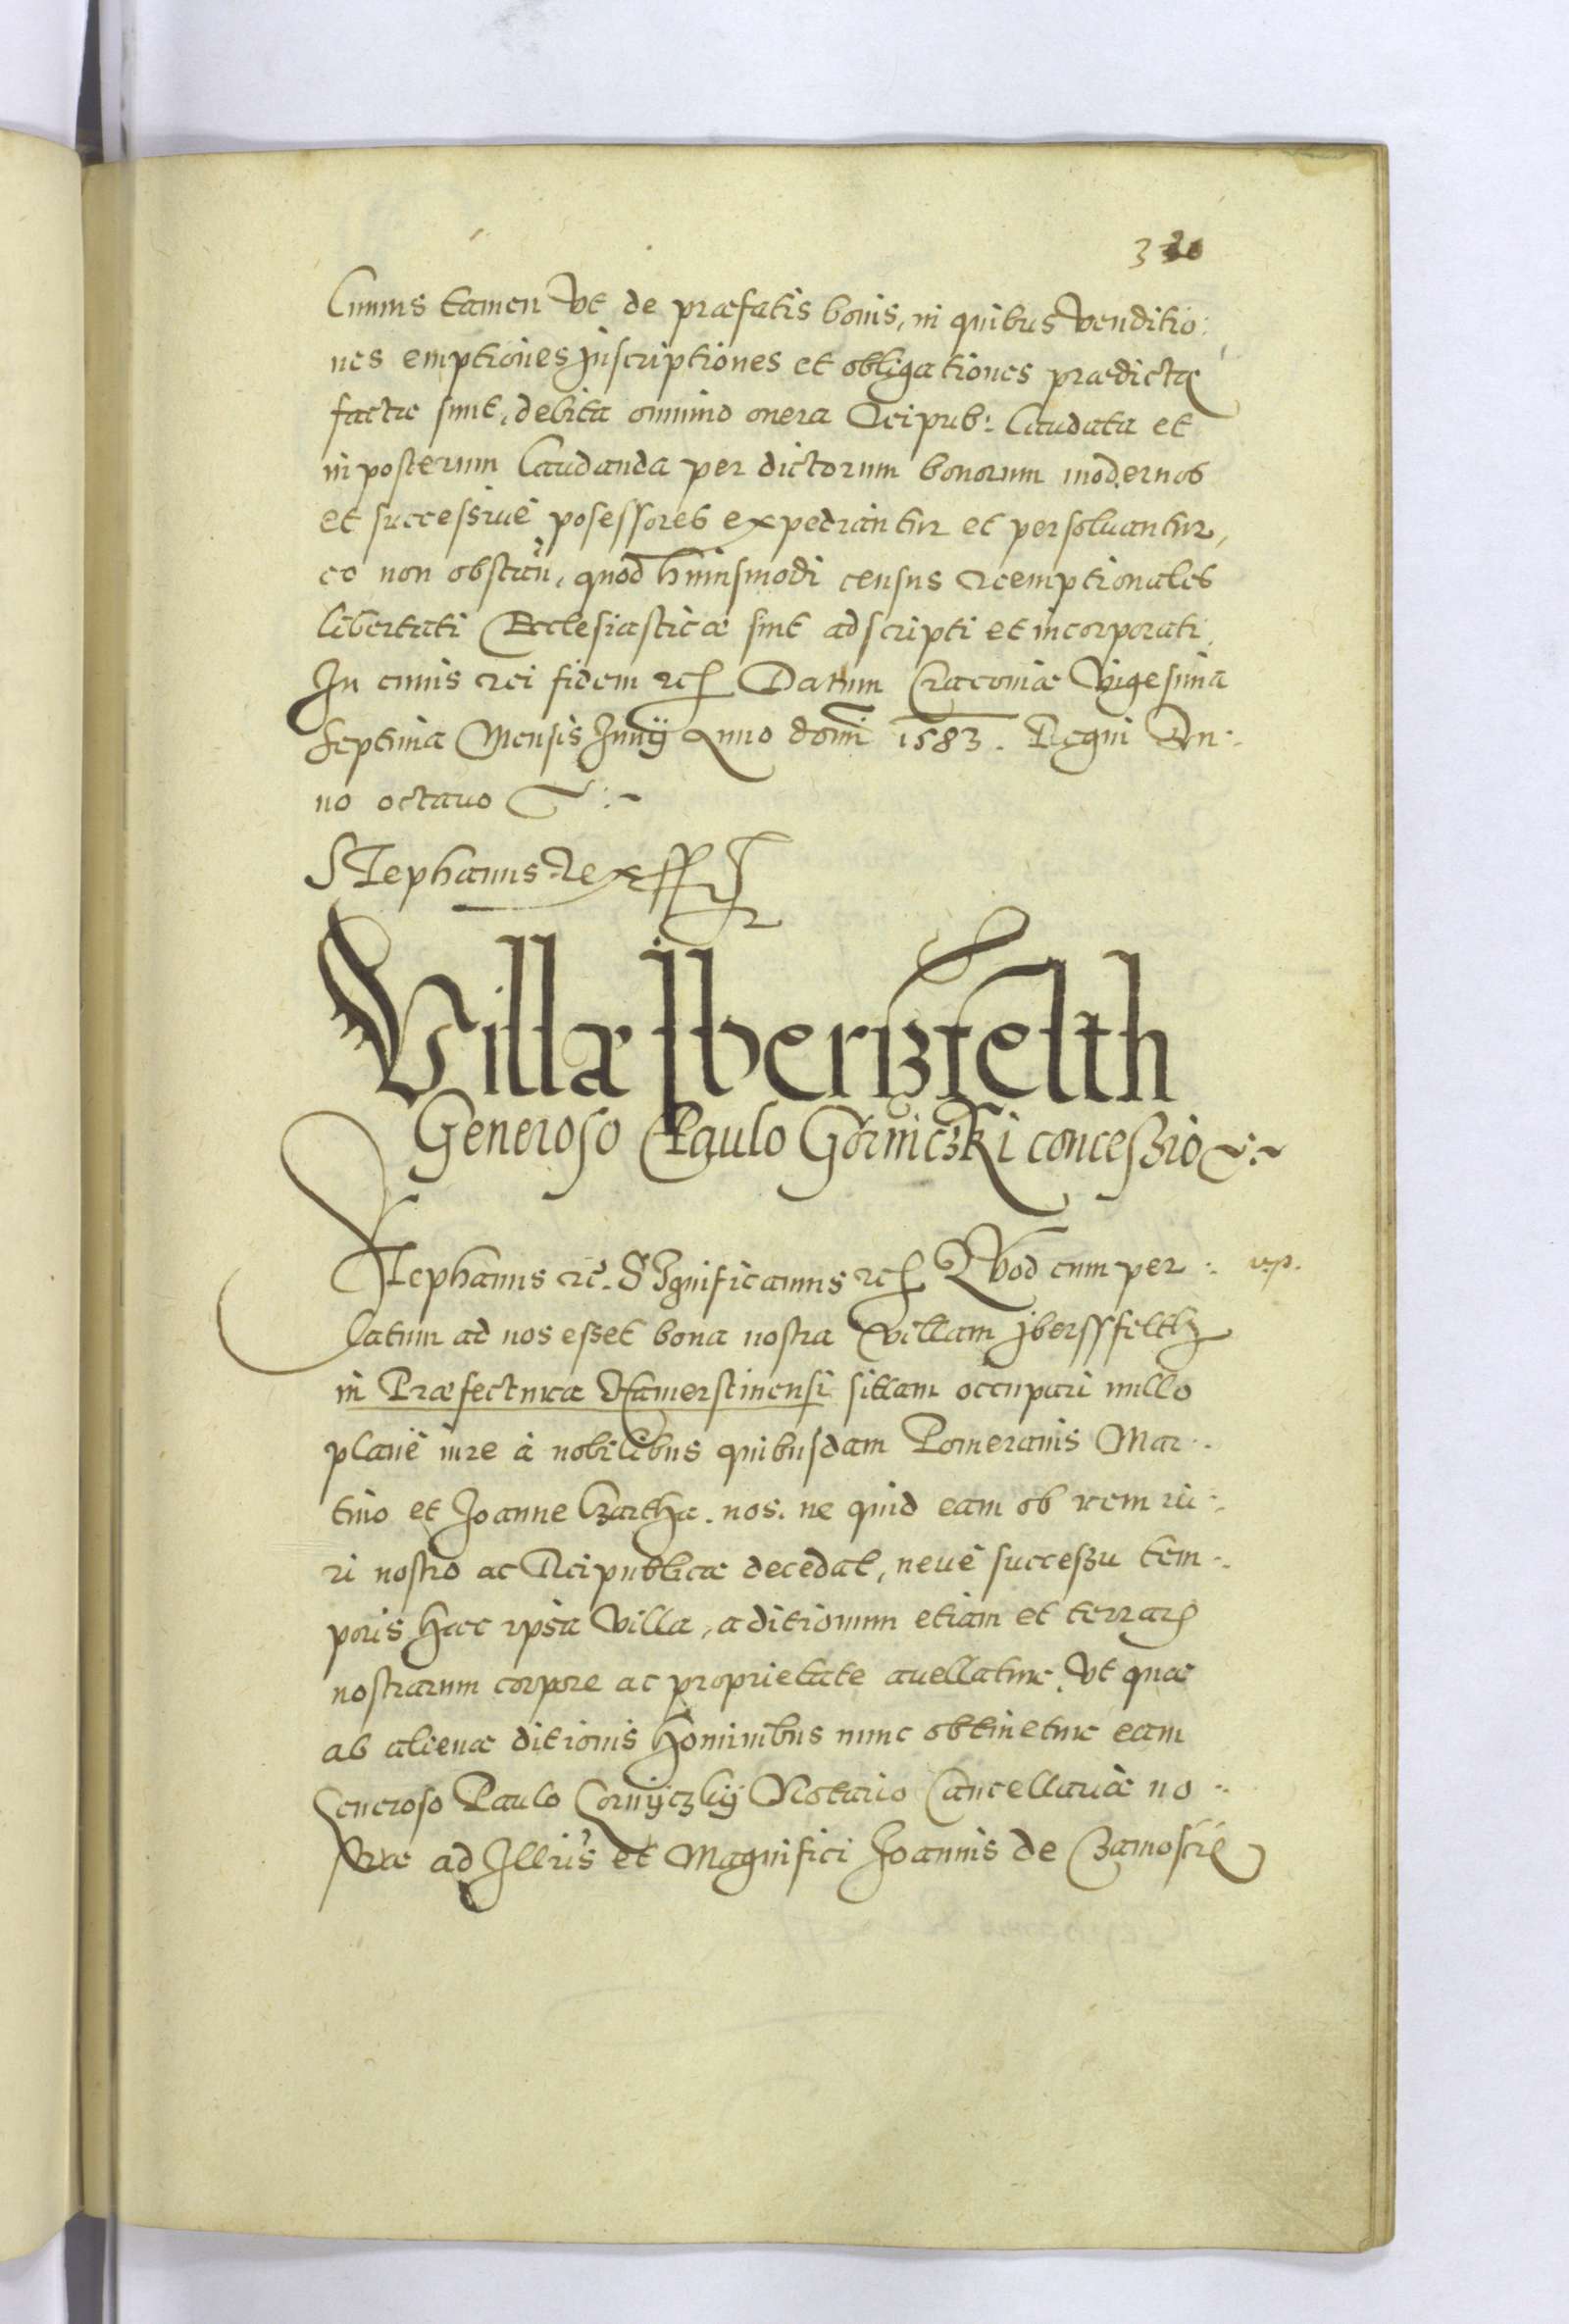 Cimus tamen Vt de præfatis bonis, in quibus venditio:
nes emptiones inscriptiones et obligationes prædictæ
factæ sunt, debita omnino onera Reipub: laudata et
in posterum laudanda per dictorum bonorum modernos
et successiuè posessores expediantur et persoluantur,
eo non obstan, quod huiusmodi census reemptionales
libertati Ecclesiasticæ sint adscripti et incorporati,
In cuius rei fidem etc Datum Cracouiæ Vigesima
septima Mensis Junij Anno domi 1583. Regni An:
no octauo
Stephanus Rex
Villæ Iberszfelth
Generoso Paulo Górniczki concessio
Stephanus etc. SIgnificamus etc Quod cum per:
latum ad nos esset bona nostra villam Jbersffelth
in Præfectura Hamerstinensi sitam occupari nullo
planè iure à nobilibus quibusdam Pomeranis Mar:
tino et Joanne Czarthæ. nos. ne quid eam ob rem iu:
ri nostro ac Reipublicæ decedat, neuè successu tem:
poris hæc ipsa villa, a ditionum etiam et terrarum
nostrarum corpore ac proprietate auellatur, Vt quæ
ab alienæ ditionis hominibus nunc obtinetur eam
Generoso Paulo Gornijczkij Notario Cancellariæ no:
stræ ad Illris et Magnifici Joannis de Czamoscie